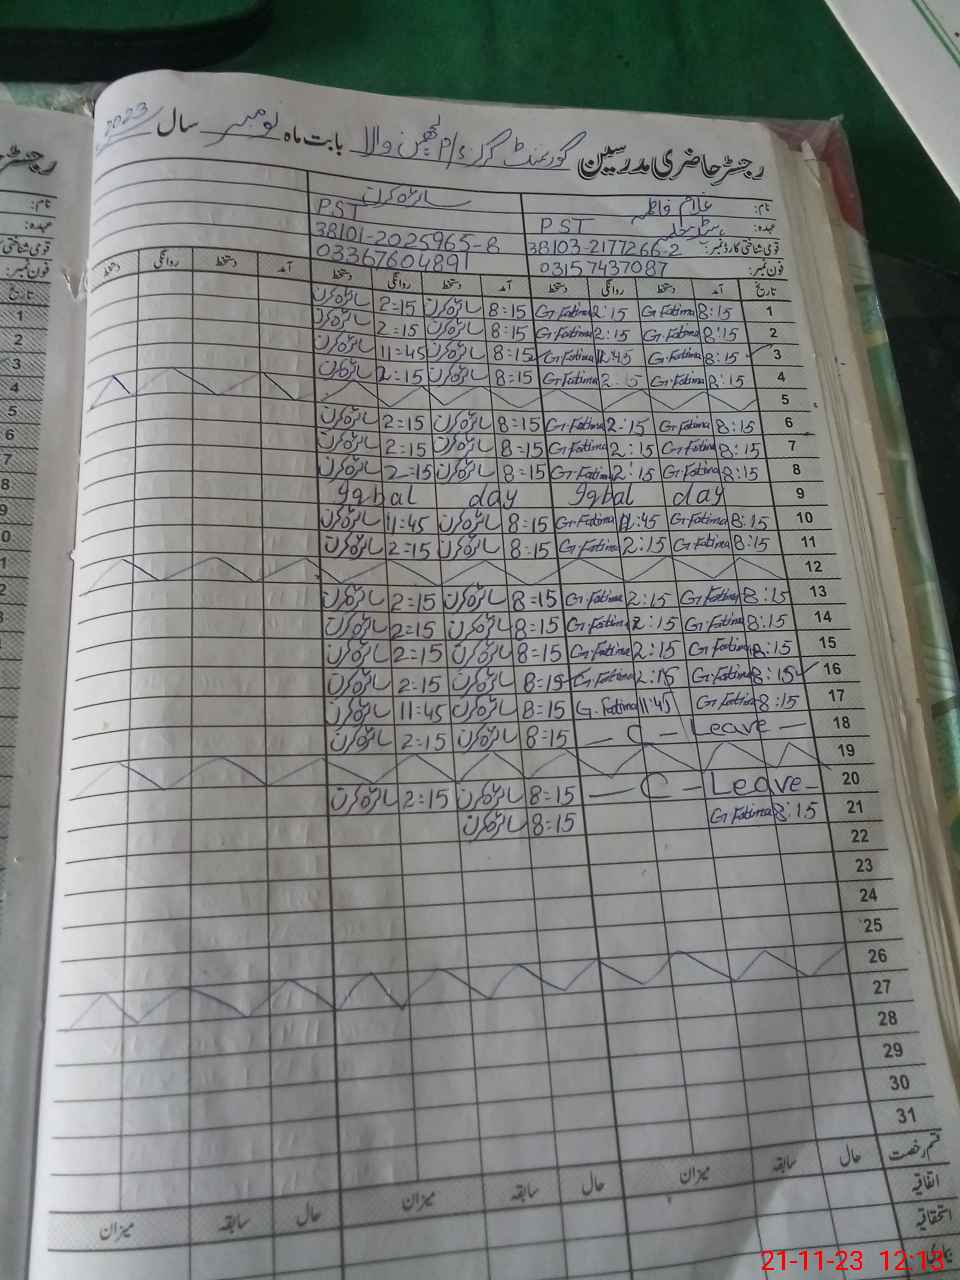 رجسٹر حاضری مدرسین گورنمنٹ گرلز بابت ماہ نومبر سال 2023
نام: غلام فاطمہ سائرہ کرن
عہدہ: PST P.ST
قومی شناختی کارڈ نمبر: 38103-2177266-2 38101-2025965-8
فون نمبر: 03157437087 03367604891
تاریخ آمد دستخط روانگی دستخط آمد دستخط روانگی دستخط آمد دستخط روانگی دستخط
1 8:15 G.Fatima 2:15 G.Fatima 8=15 سائرہ کرن 2=15 سائرہ کرن
2 8:15 G.Fatima 2:15 G.Fatima 8=15 سائرہ کرن 2=15 سائرہ کرن
3 8:15 G.Fatima 12:45 G.Fatima 8=15 سائرہ کرن 11=45 سائرہ کرن
4 8:15 G.Fatima 2:15 G.Fatima 8=15 سائرہ کرن 2=15 سائرہ کرن
5
6 8:15 G.Fatima 2:15 G.Fatima 8=15 سائرہ کرن 2=15 سائرہ کرن
7 8:15 G.Fatima 2:15 G.Fatima 8=15 سائرہ کرن 2=15 سائرہ کرن
8 8:15 G.Fatima 2:15 G.Fatima 8=15 سائرہ کرن 2=15 سائرہ کرن
9 Iqbal day Iqbal day
10 8:15 G.Fatima 11:45 G.Fatima 8=15 سائرہ کرن 11:45 سائرہ کرن
11 8:15 G.Fatima 2:15 G.Fatima 8=15 سائرہ کرن 2=15 سائرہ کرن
12
13 8:15 G.Fatima 2:15 G.Fatima 8=15 سائرہ کرن 2=15 سائرہ کرن
14 8:15 G.Fatima 2:15 G.Fatima 8=15 سائرہ کرن 2=15 سائرہ کرن
15 8:15 G.Fatima 2:15 G.Fatima 8=15 سائرہ کرن 2=15 سائرہ کرن
16 8:15 G.Fatima 2:15 G.Fatima 8=15 سائرہ کرن 2:15 سائرہ کرن
17 8:15 G.Fatima 11:45 G.Fatima 8=15 سائرہ کرن 11:45 سائرہ کرن
18 — C — Leave — 8=15 سائرہ کرن 2:15 سائرہ کرن
19
20 — C — Leave — 8=15 سائرہ کرن 2=15 سائرہ کرن
21 8:15 G.Fatima 8=15 سائرہ کرن
22
23
24
25
26
27
28
29
30
31
قسم رخصت حال سابقہ میزان حال سابقہ میزان حال سابقہ میزان
اتفاقیہ
استحقاقیہ
21-11-23 12:13